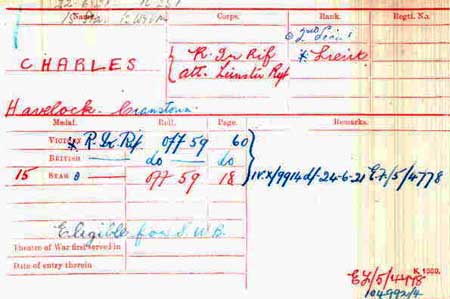 Name. Corps. Rank. Regtl. No.
2nd Lieut
CHARLES R. Ir Rif * Lieut
att. Leinster Regt
Havelock Cranstoun.
Medal. Roll. Page. Remarks.
VICTORY * R. Ir Rif. Off 59 60
BRITISH do do
15 STAR B Off 59 18 IV.X/9914 d/- 24-6-21 E.F/5/4778
Eligible for S.W.B.
Theatre of War first served in
Date of entry therein
K 1380.
EF/5/4778
104992/4